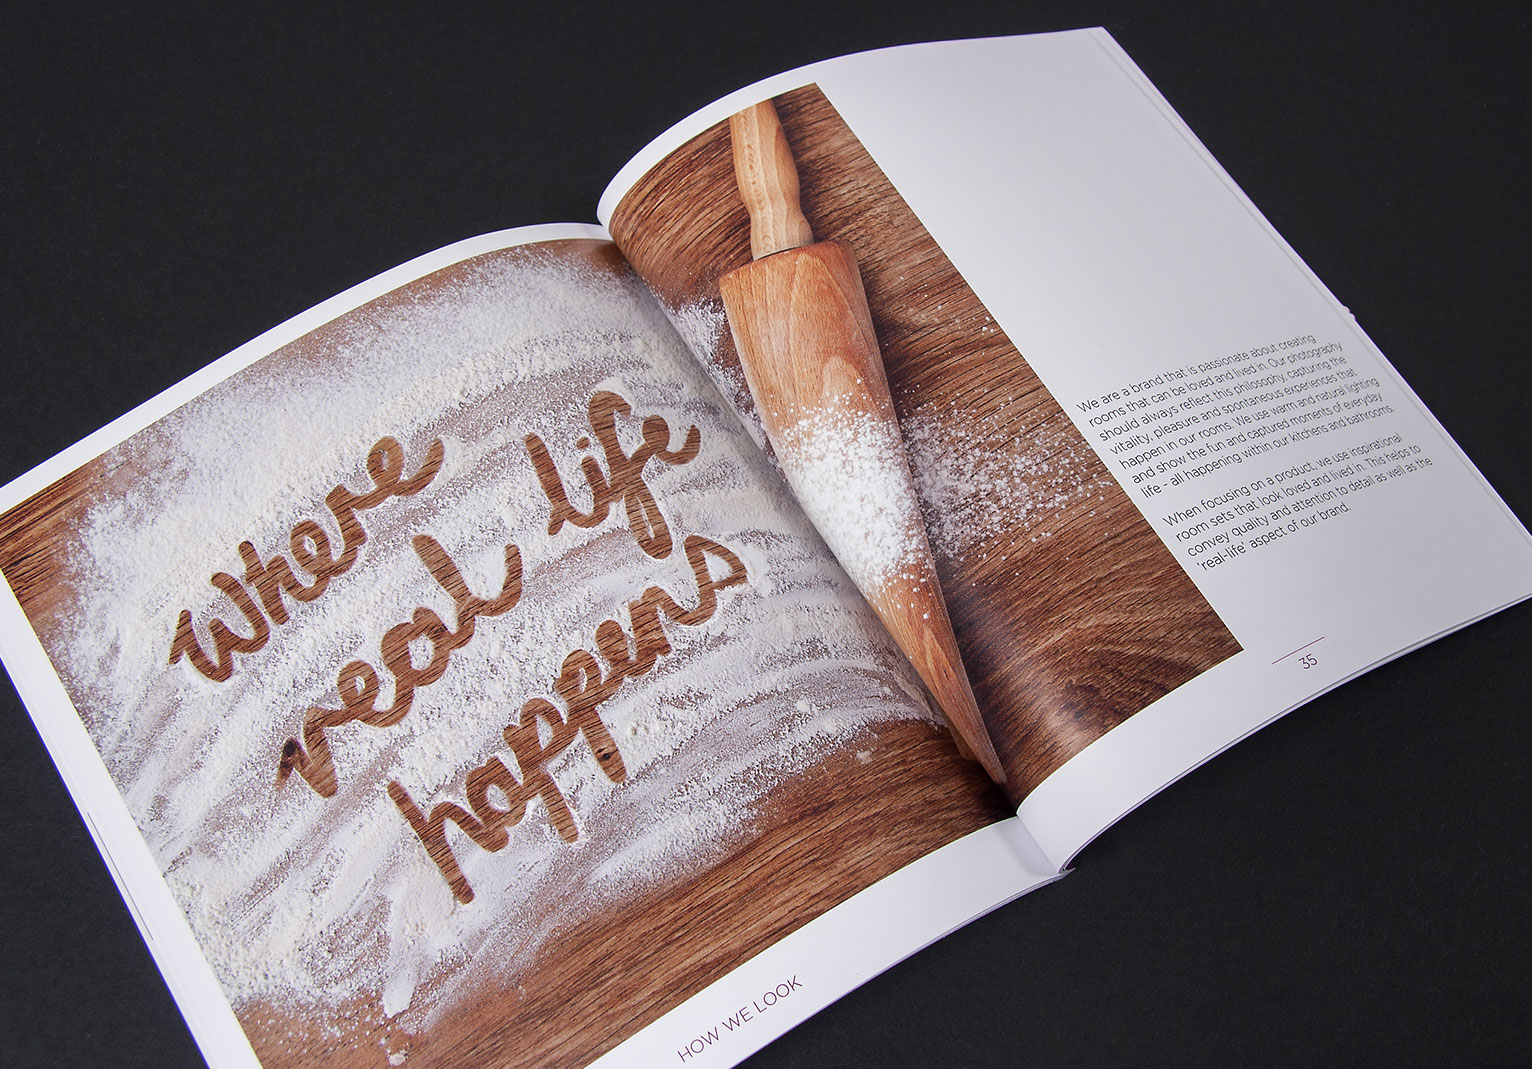 where
real life
happens
HOW WE LOOK
We are a brand that is passionate about creating
rooms that can be loved and lived in. Our photography
should always reflect this philosophy, capturing the
vitality, pleasure and spontaneous experiences that
happen in our rooms. We use warm and natural lighting
and show the fun and captured moments of everyday
life - all happening within our kitchens and bathrooms.
When focusing on a product, we use inspirational
room sets that look loved and lived in. This helps to
convey quality and attention to detail as well as the
'real-life' aspect of our brand.
35